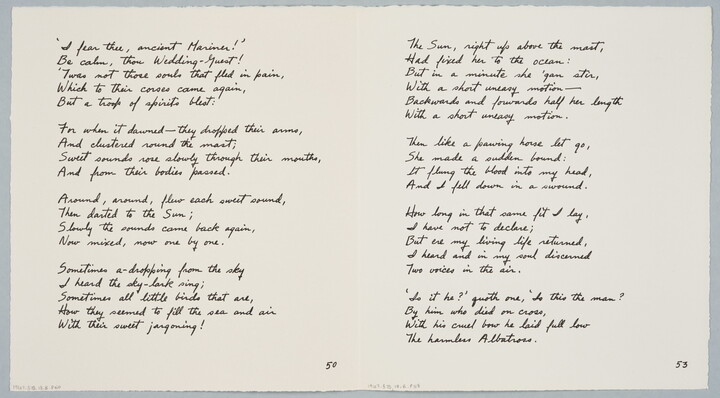 'I fear thee, ancient Mariner!'
Be calm, thou Wedding-Guest!
'Twas not those souls that fled in pain,
Which to their corses came again,
But a troop of spirits blest:
For when it dawned—they dropped their arms,
And clustered round the mast;
Sweet sounds rose slowly through their mouths,
And from their bodies passed.
Around, around, flew each sweet sound,
Then darted to the Sun;
Slowly the sounds came back again,
Now mixed, now one by one.
Sometimes a-dropping from the sky
I heard the sky-lark sing;
Sometimes all little birds that are,
How they seemed to fill the sea and air
With their sweet jargoning!
50
The Sun, right up above the mast,
Had fixed her to the ocean:
But in a minute she 'gan stir,
With a short uneasy motion—
Backwards and forwards half her length
With a short uneasy motion.
Then like a pawing horse let go,
She made a sudden bound:
It flung the blood into my head,
And I fell down in a swound.
How long in that same fit I lay,
I have not to declare;
But ere my living life returned,
I heard and in my soul discerned
Two voices in the air.
'Is it he?' quoth one, 'Is this the man?
By him who died on cross,
With his cruel bow he laid full low
The harmless Albatross.
53